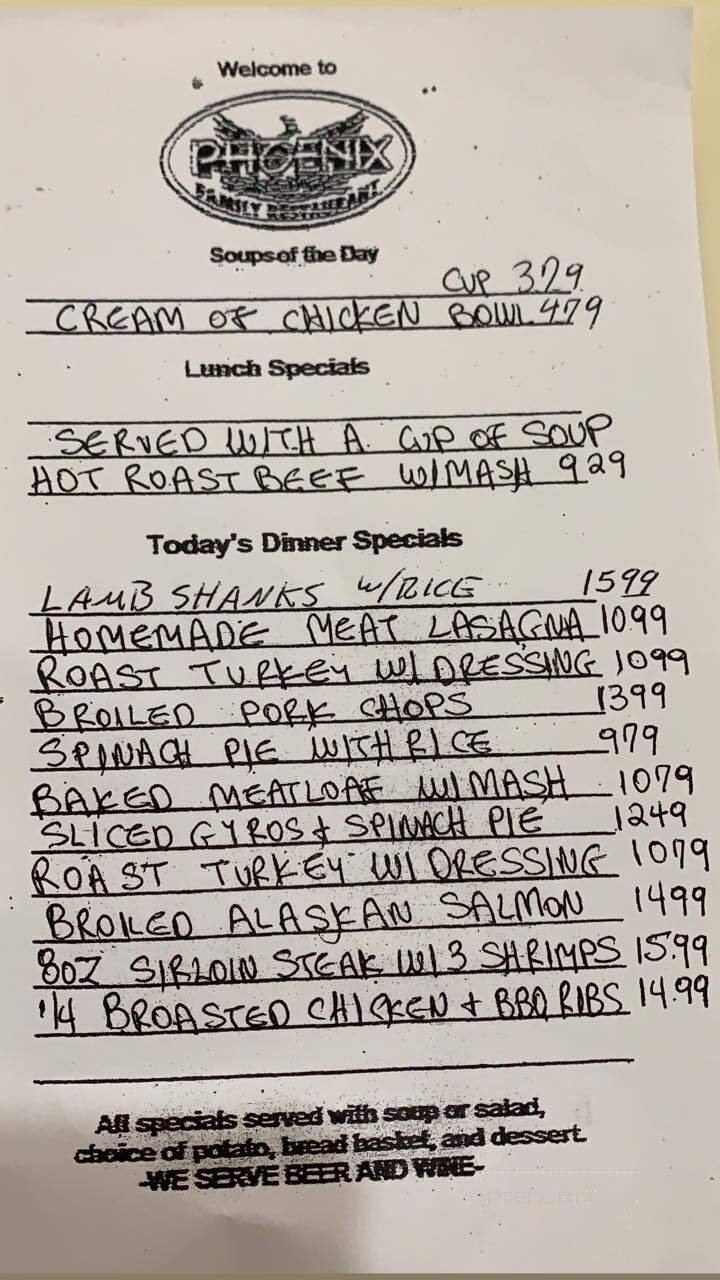 Welcome to
PHOENIX
FAMILY RESTAURANT
Soups of the Day
CUP 329
CREAM OF CHICKEN BOWL 479
Lunch Specials
SERVED WITH A CUP OF SOUP
HOT ROAST BEEF W/MASH 929
Today's Dinner Specials
LAMB SHANKS W/RICE 1599
HOMEMADE MEAT LASAGNA 1099
ROAST TURKEY W/ DRESSING 1099
BROILED PORK CHOPS 1399
SPINACH PIE WITH RICE 979
BAKED MEATLOAF W/MASH 1079
SLICED GYROS & SPINACH PIE 1249
ROAST TURKEY W/ DRESSING 1079
BROILED ALASKAN SALMON 1499
8OZ SIRLOIN STEAK W/3 SHRIMPS 15.99
1/4 BROASTED CHICKEN + BBQ RIBS 14.99
All specials served with soup or salad,
choice of potato, bread basket, and dessert.
-WE SERVE BEER AND WINE-